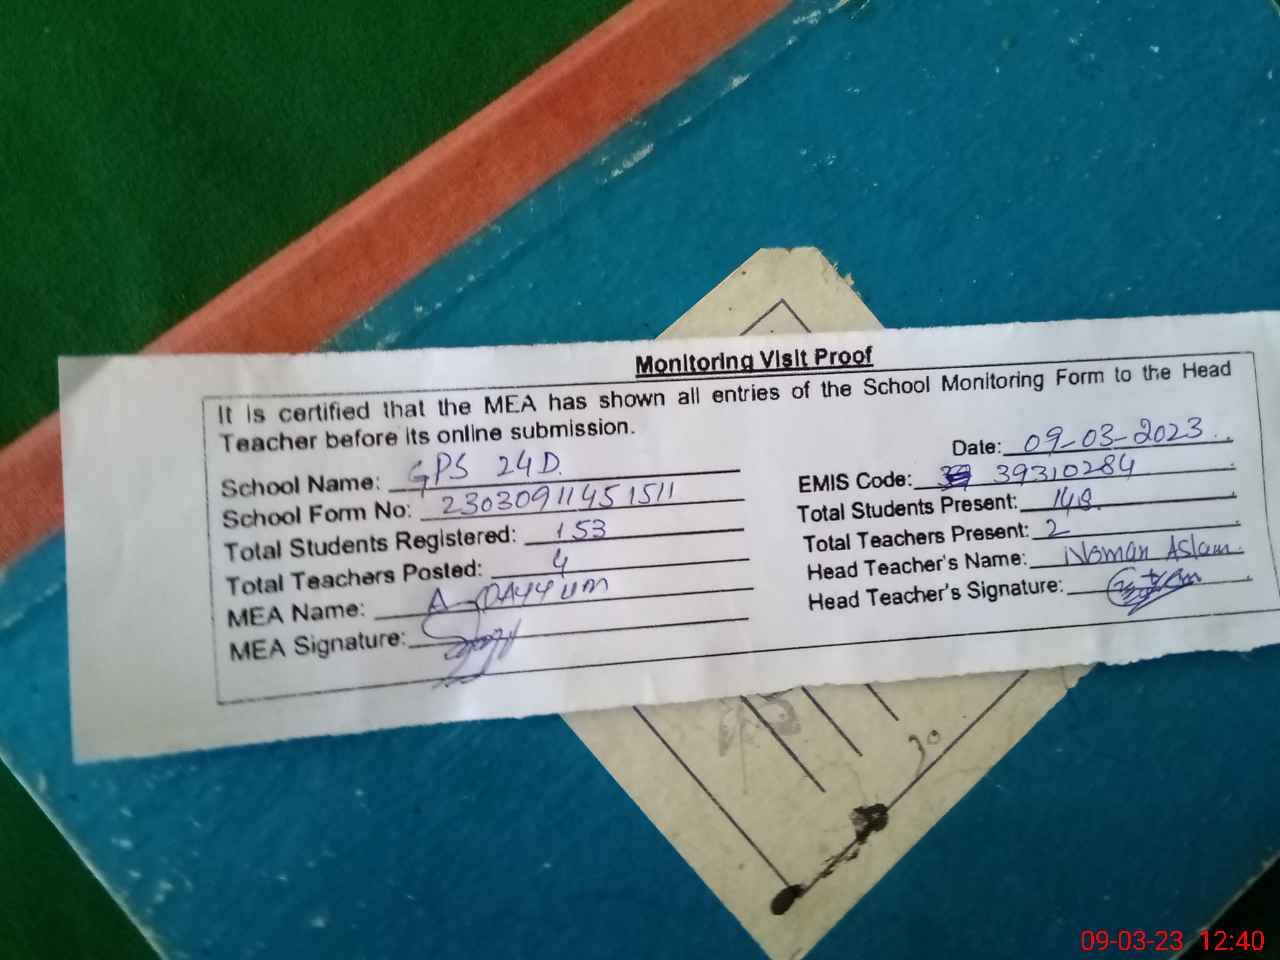 Monitoring Visit Proof
It is certified that the MEA has shown all entries of the School Monitoring Form to the Head
Teacher before its online submission.
Date: 09-03-2023
School Name: GPS 24D.
EMIS Code: 39310284
School Form No: 23030911451511
Total Students Present: 148
Total Students Registered: 153
Total Teachers Present: 2
Total Teachers Posted: 4
Head Teacher's Name: Noman Aslam.
MEA Name: A-QAYYUM
Head Teacher's Signature:
MEA Signature:
30
09-03-23 12:40